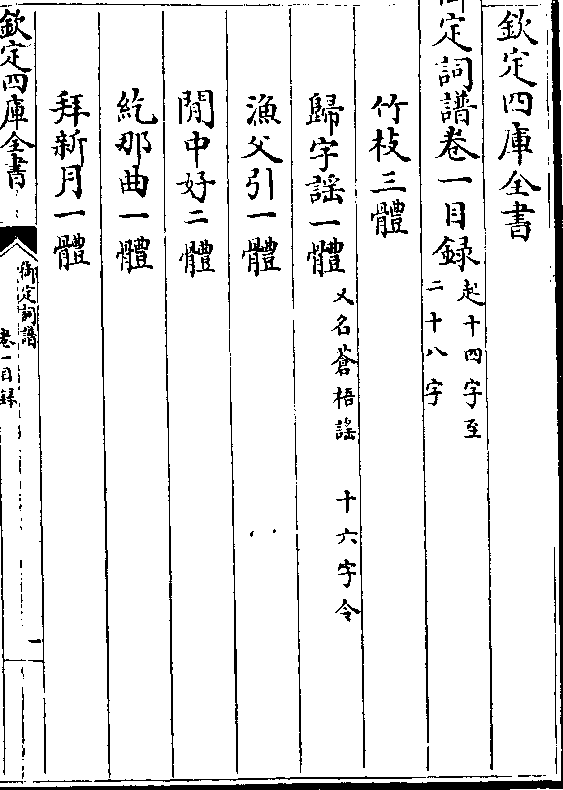 欽定四庫全書
御定詞譜卷一目録 起十四字至
二十八字
竹枝三體
歸字謡一體 又名蒼梧謡 十六字令
漁父引一體
閒中好二體
紇那曲一體
拜新月一體
欽定四庫全書
御定詞譜
卷一目録
一